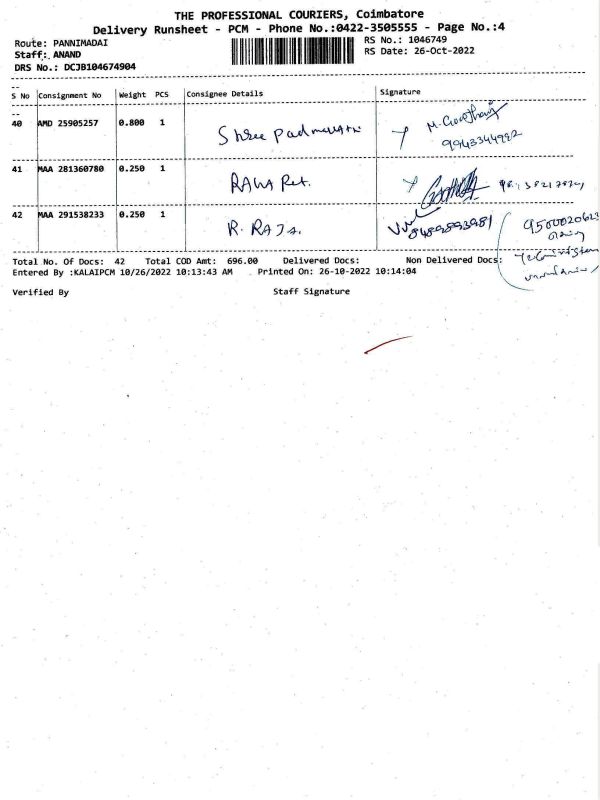 THE PROFESSIONAL COURIERS, Coimbatore
Delivery Runsheet - PCM - Phone No.:0422-3505555 - Page No.:4
Route: PANNIMADAI
RS No.: 1046749
Staff: ANAND
RS Date: 26-Oct-2022
DRS No.: DCJB104674904
S No Consignment No Weight PCS Consignee Details Signature
40 AMD 25905257 0.800 1 Shree Padmavathi
9943344992
41 MAA 281360780 0.250 1
42 MAA 291538233 0.250 1 R. RAJA.
9500020623
Total No. Of Docs: 42 Total COD Amt: 696.00 Delivered Docs: Non Delivered Docs:
Entered By :KALAIPCM 10/26/2022 10:13:43 AM Printed On: 26-10-2022 10:14:04
Verified By Staff Signature